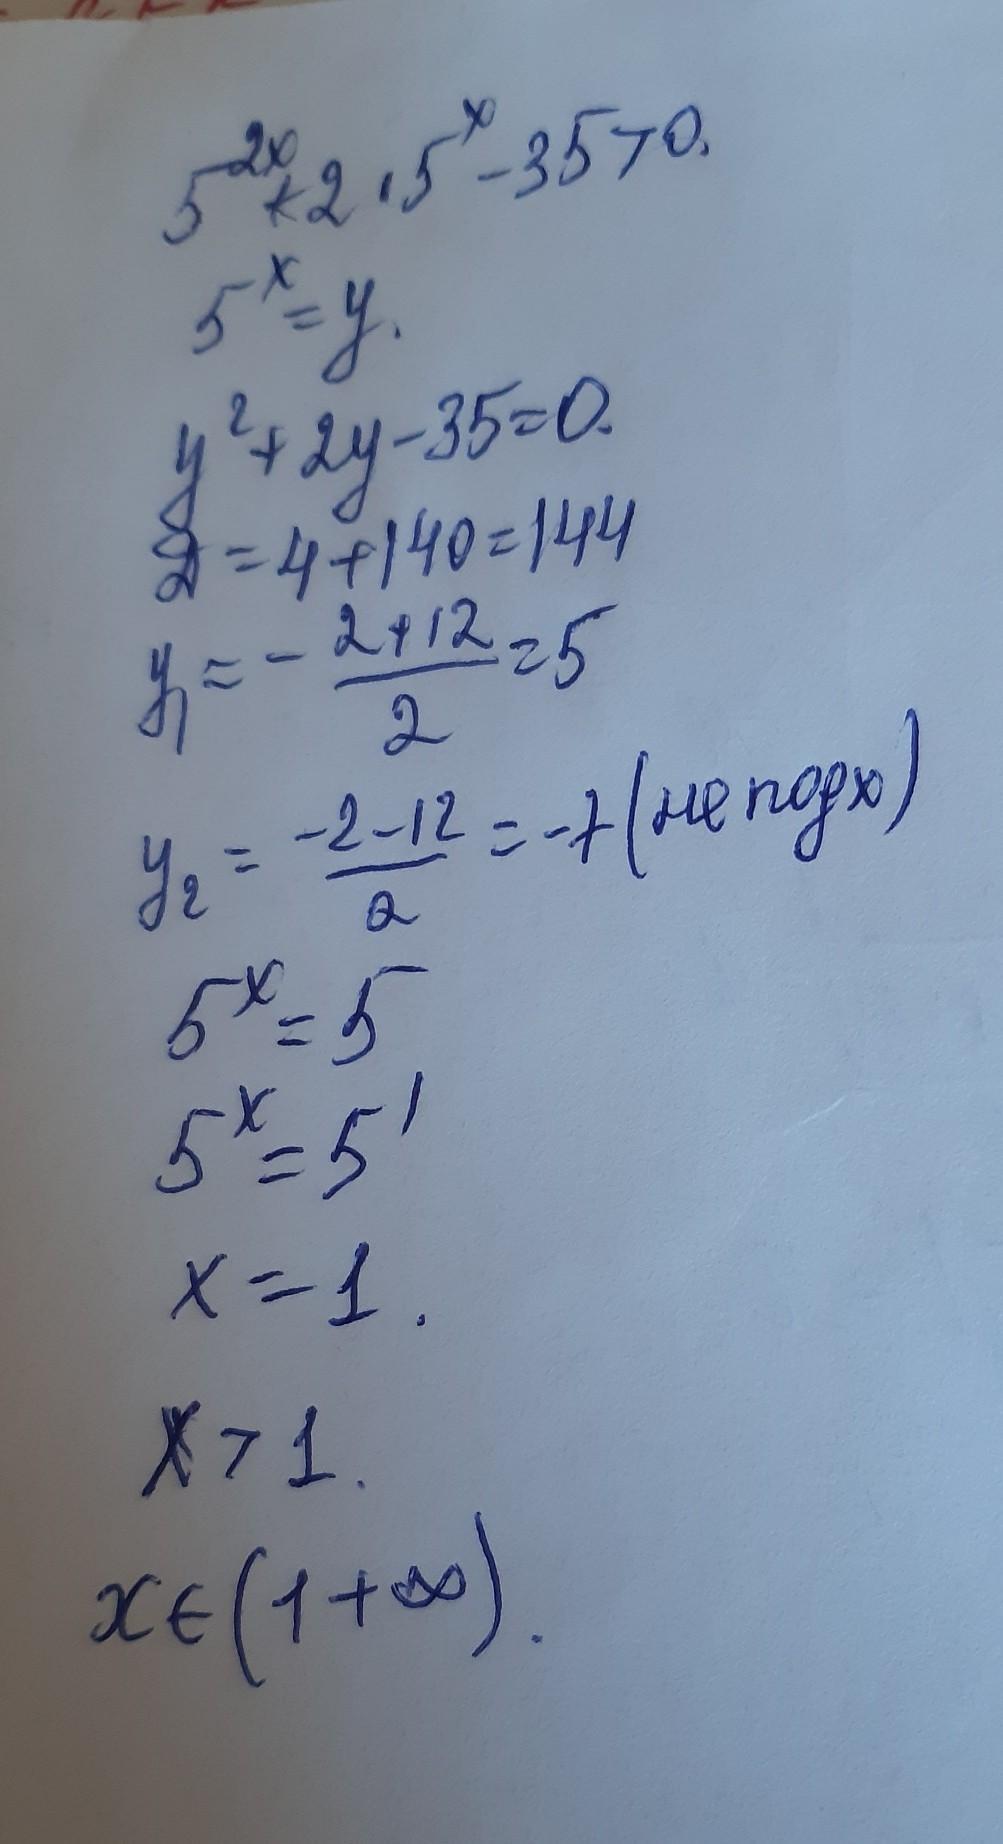 5^{2x}+2·5^x-35>0.
5^x=y.
y^2+2y-35=0.
D=4+140=144
y_1=-\frac{2+12}{2}=5
y_2=\frac{-2-12}{2}=-7(не подх)
5^x=5
5^x=5^1
x=1.
x>1.
x∈(1+∞).